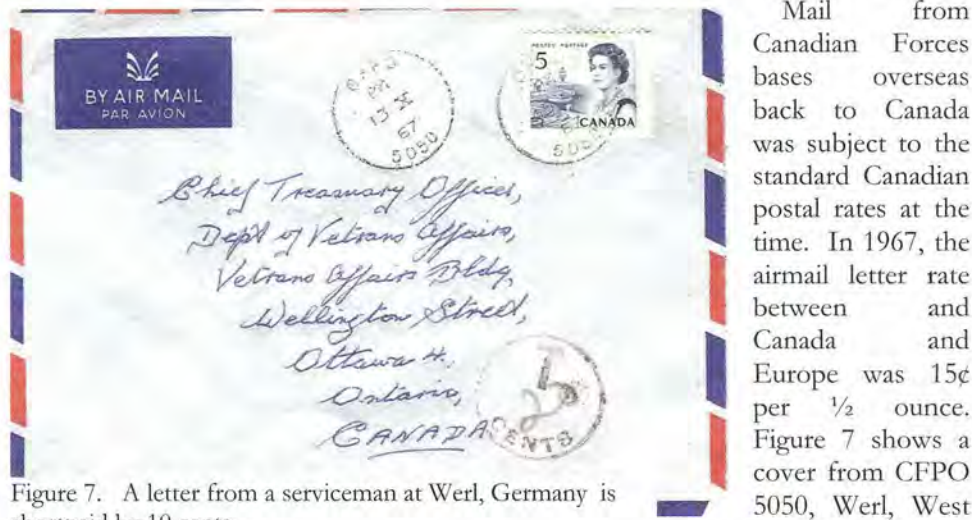 BY AIR MAIL
PAR AVION
CFPO
PM
13 X
67
5050
POSTES POSTAGE
5
CANADA
67
505
Chief Treasury Officer,
Dept of Vetrans Affairs,
Vetrans Affairs Bldg,
Wellington Street,
Ottawa 4.
Ontario,
CANADA
T
CENTS
Figure 7. A letter from a serviceman at Werl, Germany is
Mail from
Canadian Forces
bases overseas
back to Canada
was subject to the
standard Canadian
postal rates at the
time. In 1967, the
airmail letter rate
between and
Canada and
Europe was 15¢
per ½ ounce.
Figure 7 shows a
cover from CFPO
5050, Werl, West